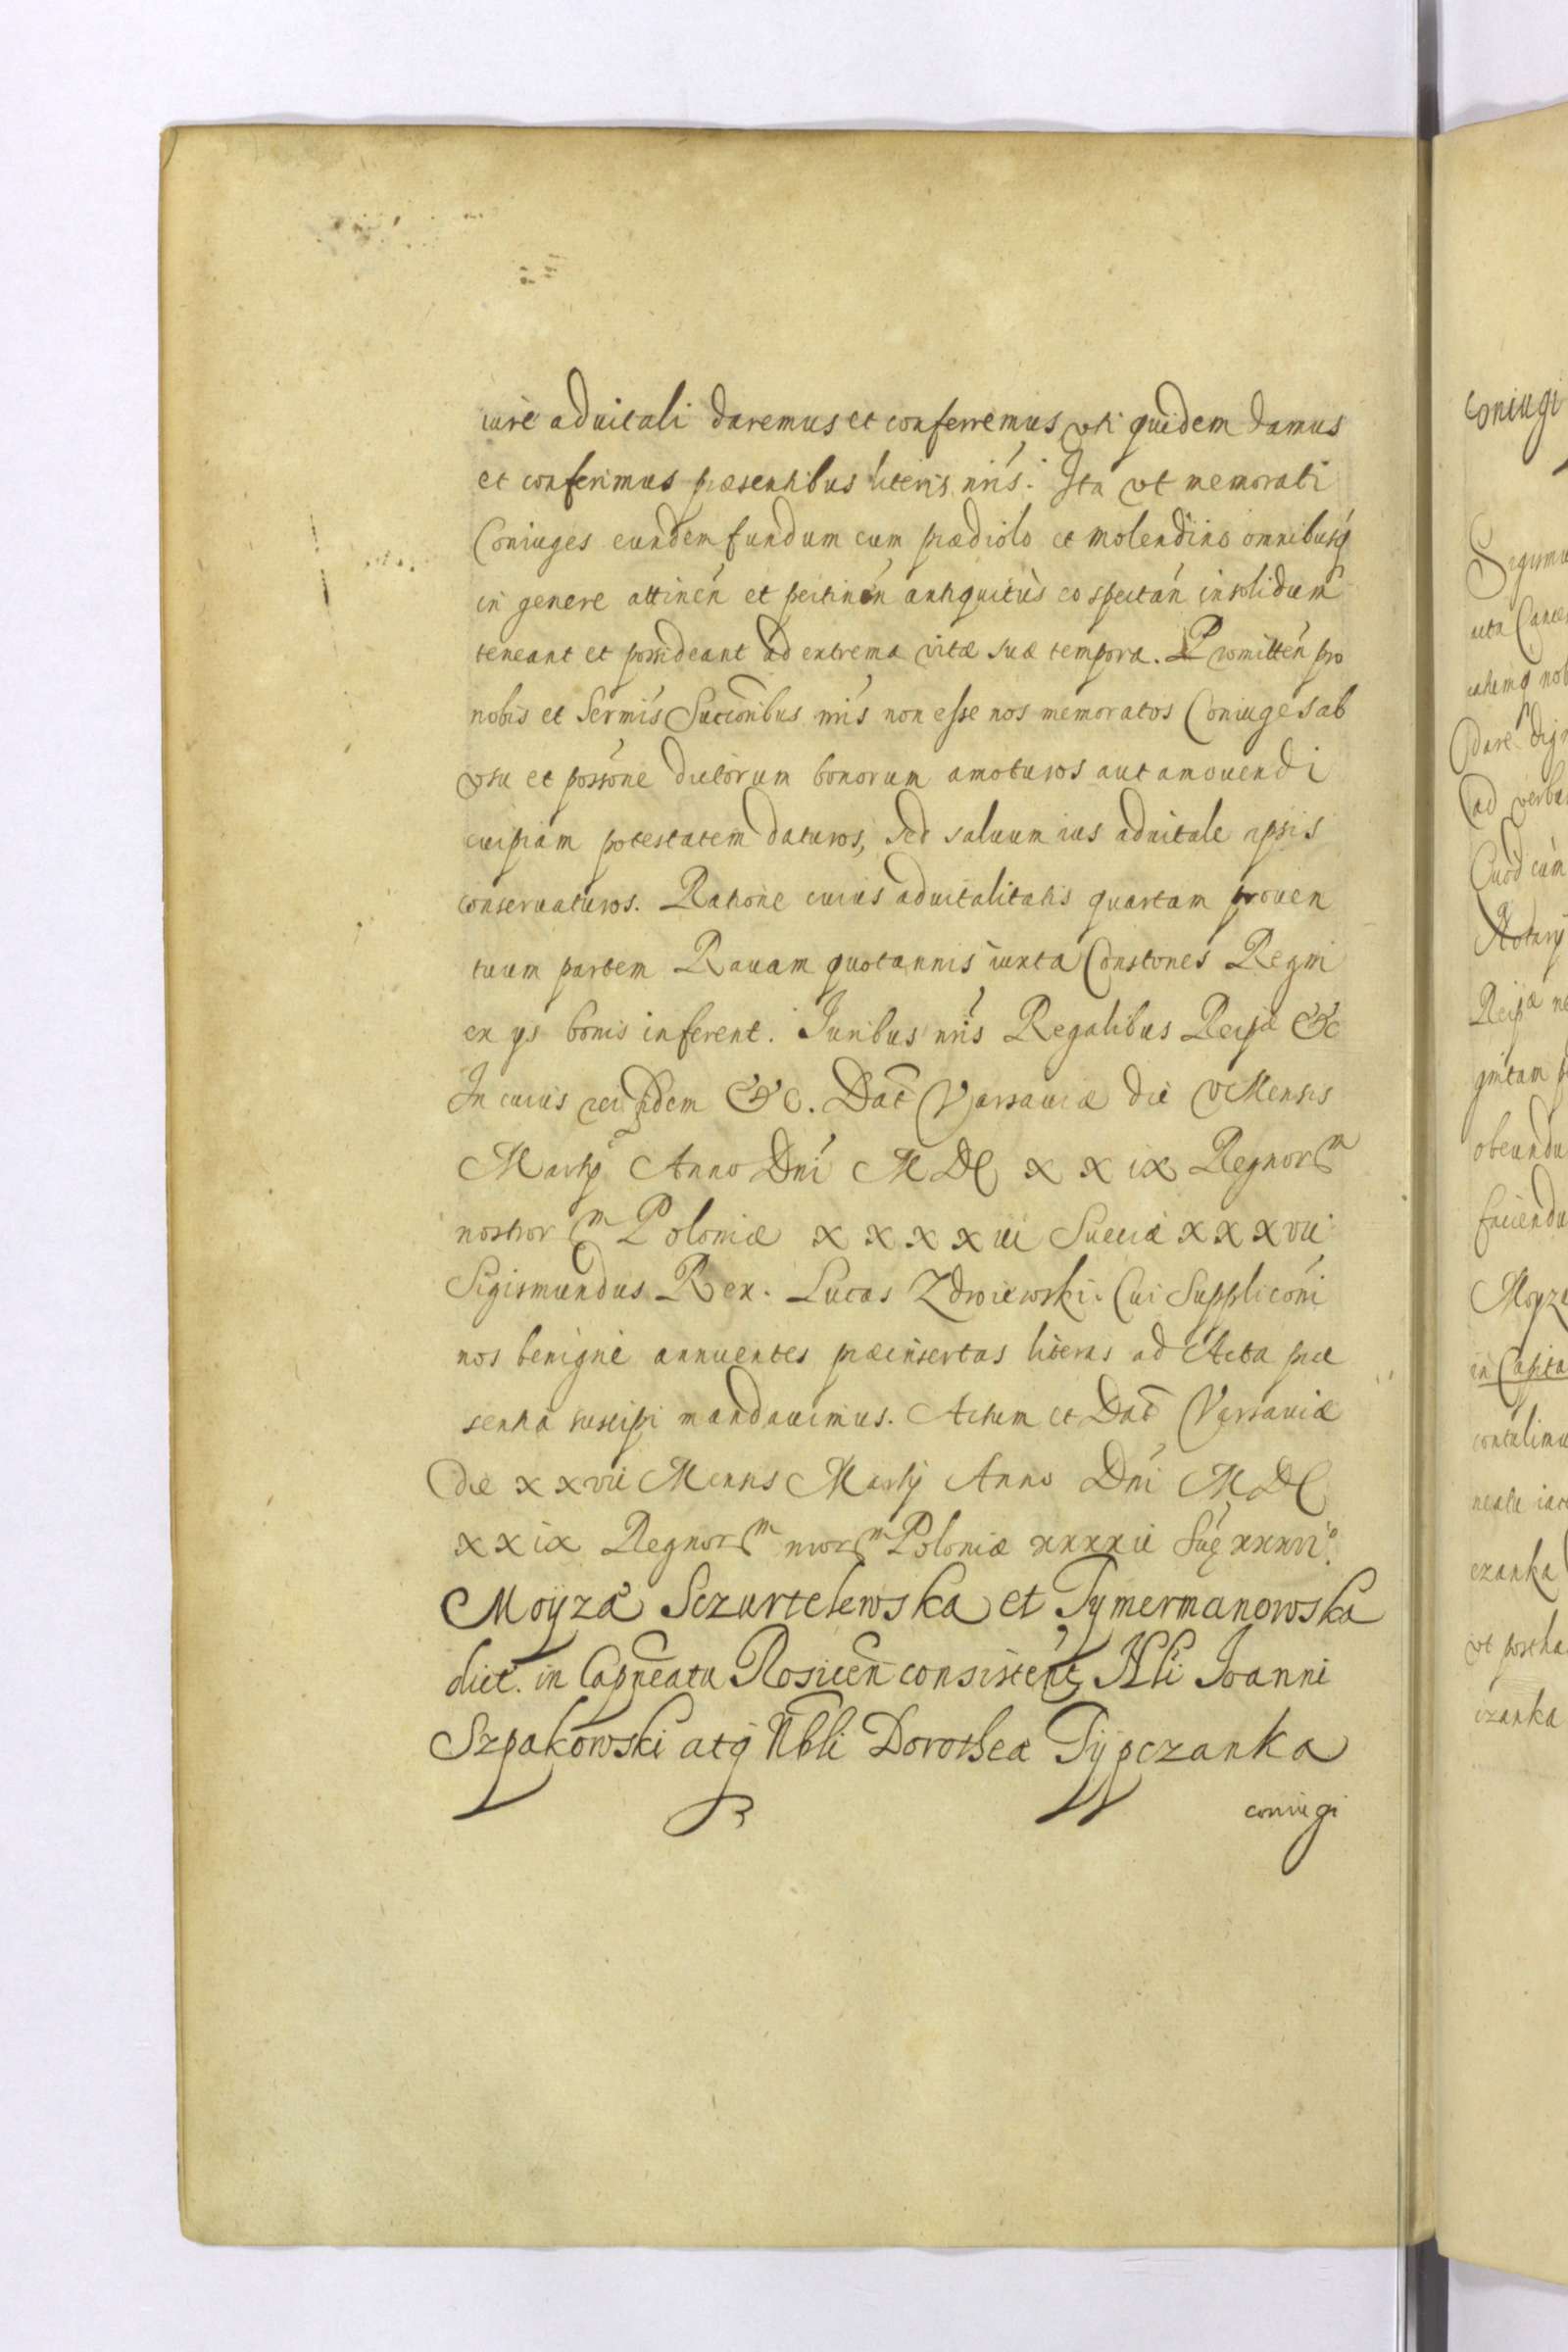 iure aduitali daremus et conferremus, vti quidem damus
et conferimus præsentibus literis nris. Ita vt memorati
Coniuges eundem fundum cum prædiolo et molendino omnibusq
in genere attinen et pertinen antiquitus eo spectan in solidum
teneant et possideant ad extrema vitæ suæ tempora. Promitten pro
nobis et Sermis Succoribus nris non esse nos memoratos Coniuges ab
vsu et possone dictorum bonorum amoturos aut amouendi
cuipiam potestatem daturos, sed saluum ius aduitale ipsis
conseruaturos. Ratione cuius aduitalitatis quartam prouen
tuum partem Rauam quotannis iuxta Constones Regni
ex ys bonis inferent. Iuribus nris Regalibus Reipæ &c
In cuius rei fidem &c. Dat Varsauiæ die v Mensis
Martij Anno Dni MDC xxix Regnorm
nostrorm Poloniæ xxxxii Sueciæ xxxvii
Sigismundus Rex. Lucas Zdroiewski. Cui Supplicōni
nos benigne annuentes præinsertas literas ad Acta præ
sentia suscipi mandauimus. Actum et Dat Varsauiæ
die xxvii Mensis Martij Anno Dni MDC
xxix Regnorm nrorm Poloniæ xxxxii Suę xxxvi°.
Moyza Sczurtelewska et Tymermanowska
dict. in Capneatu Rosicen consistent, Nli Ioanni
Szpakowski atq Nbli Dorothea Typczanka
coniugi
coniugi